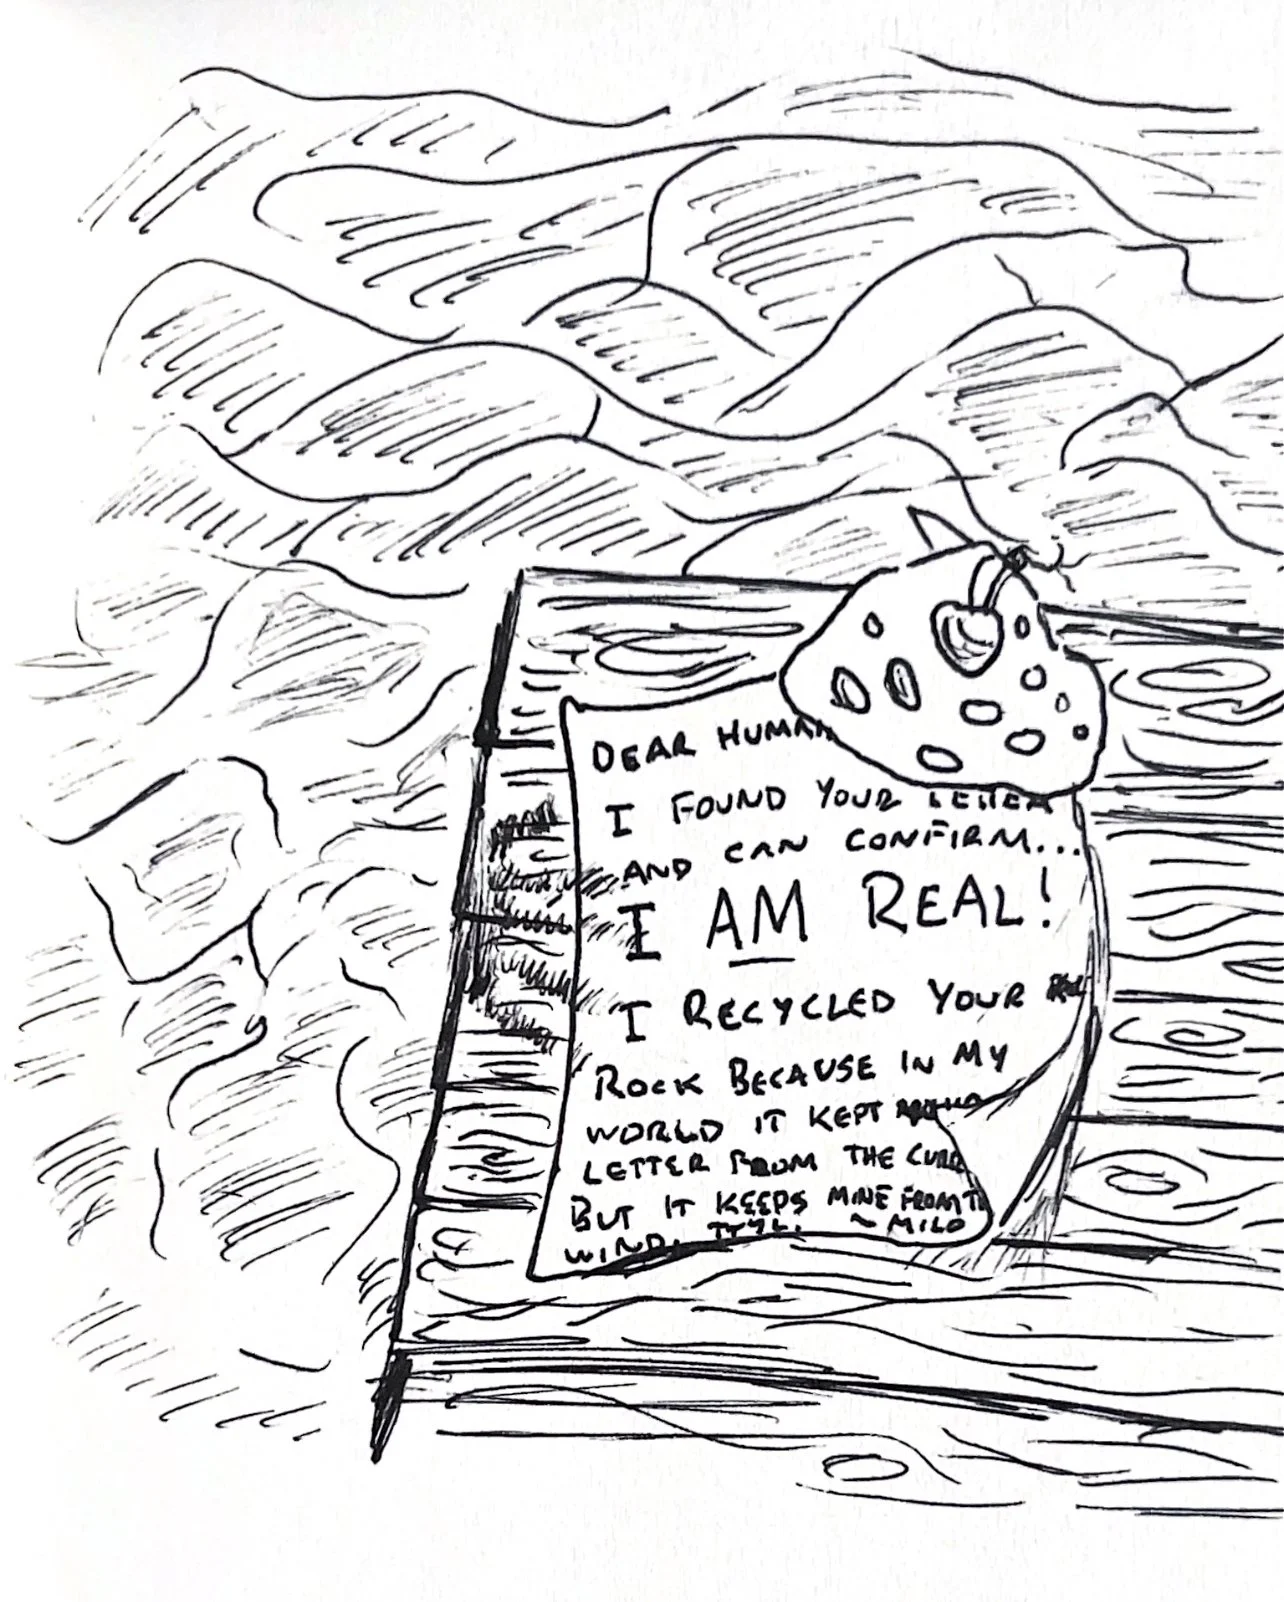 DEAR HUMAN
I FOUND YOUR LETTER
AND CAN CONFIRM...
I AM REAL!
I RECYCLED YOUR
ROCK BECAUSE IN MY
WORLD IT KEPT
LETTER FROM THE
BUT IT KEEPS MINE FROM
WIND. TTYL. ~ MILO